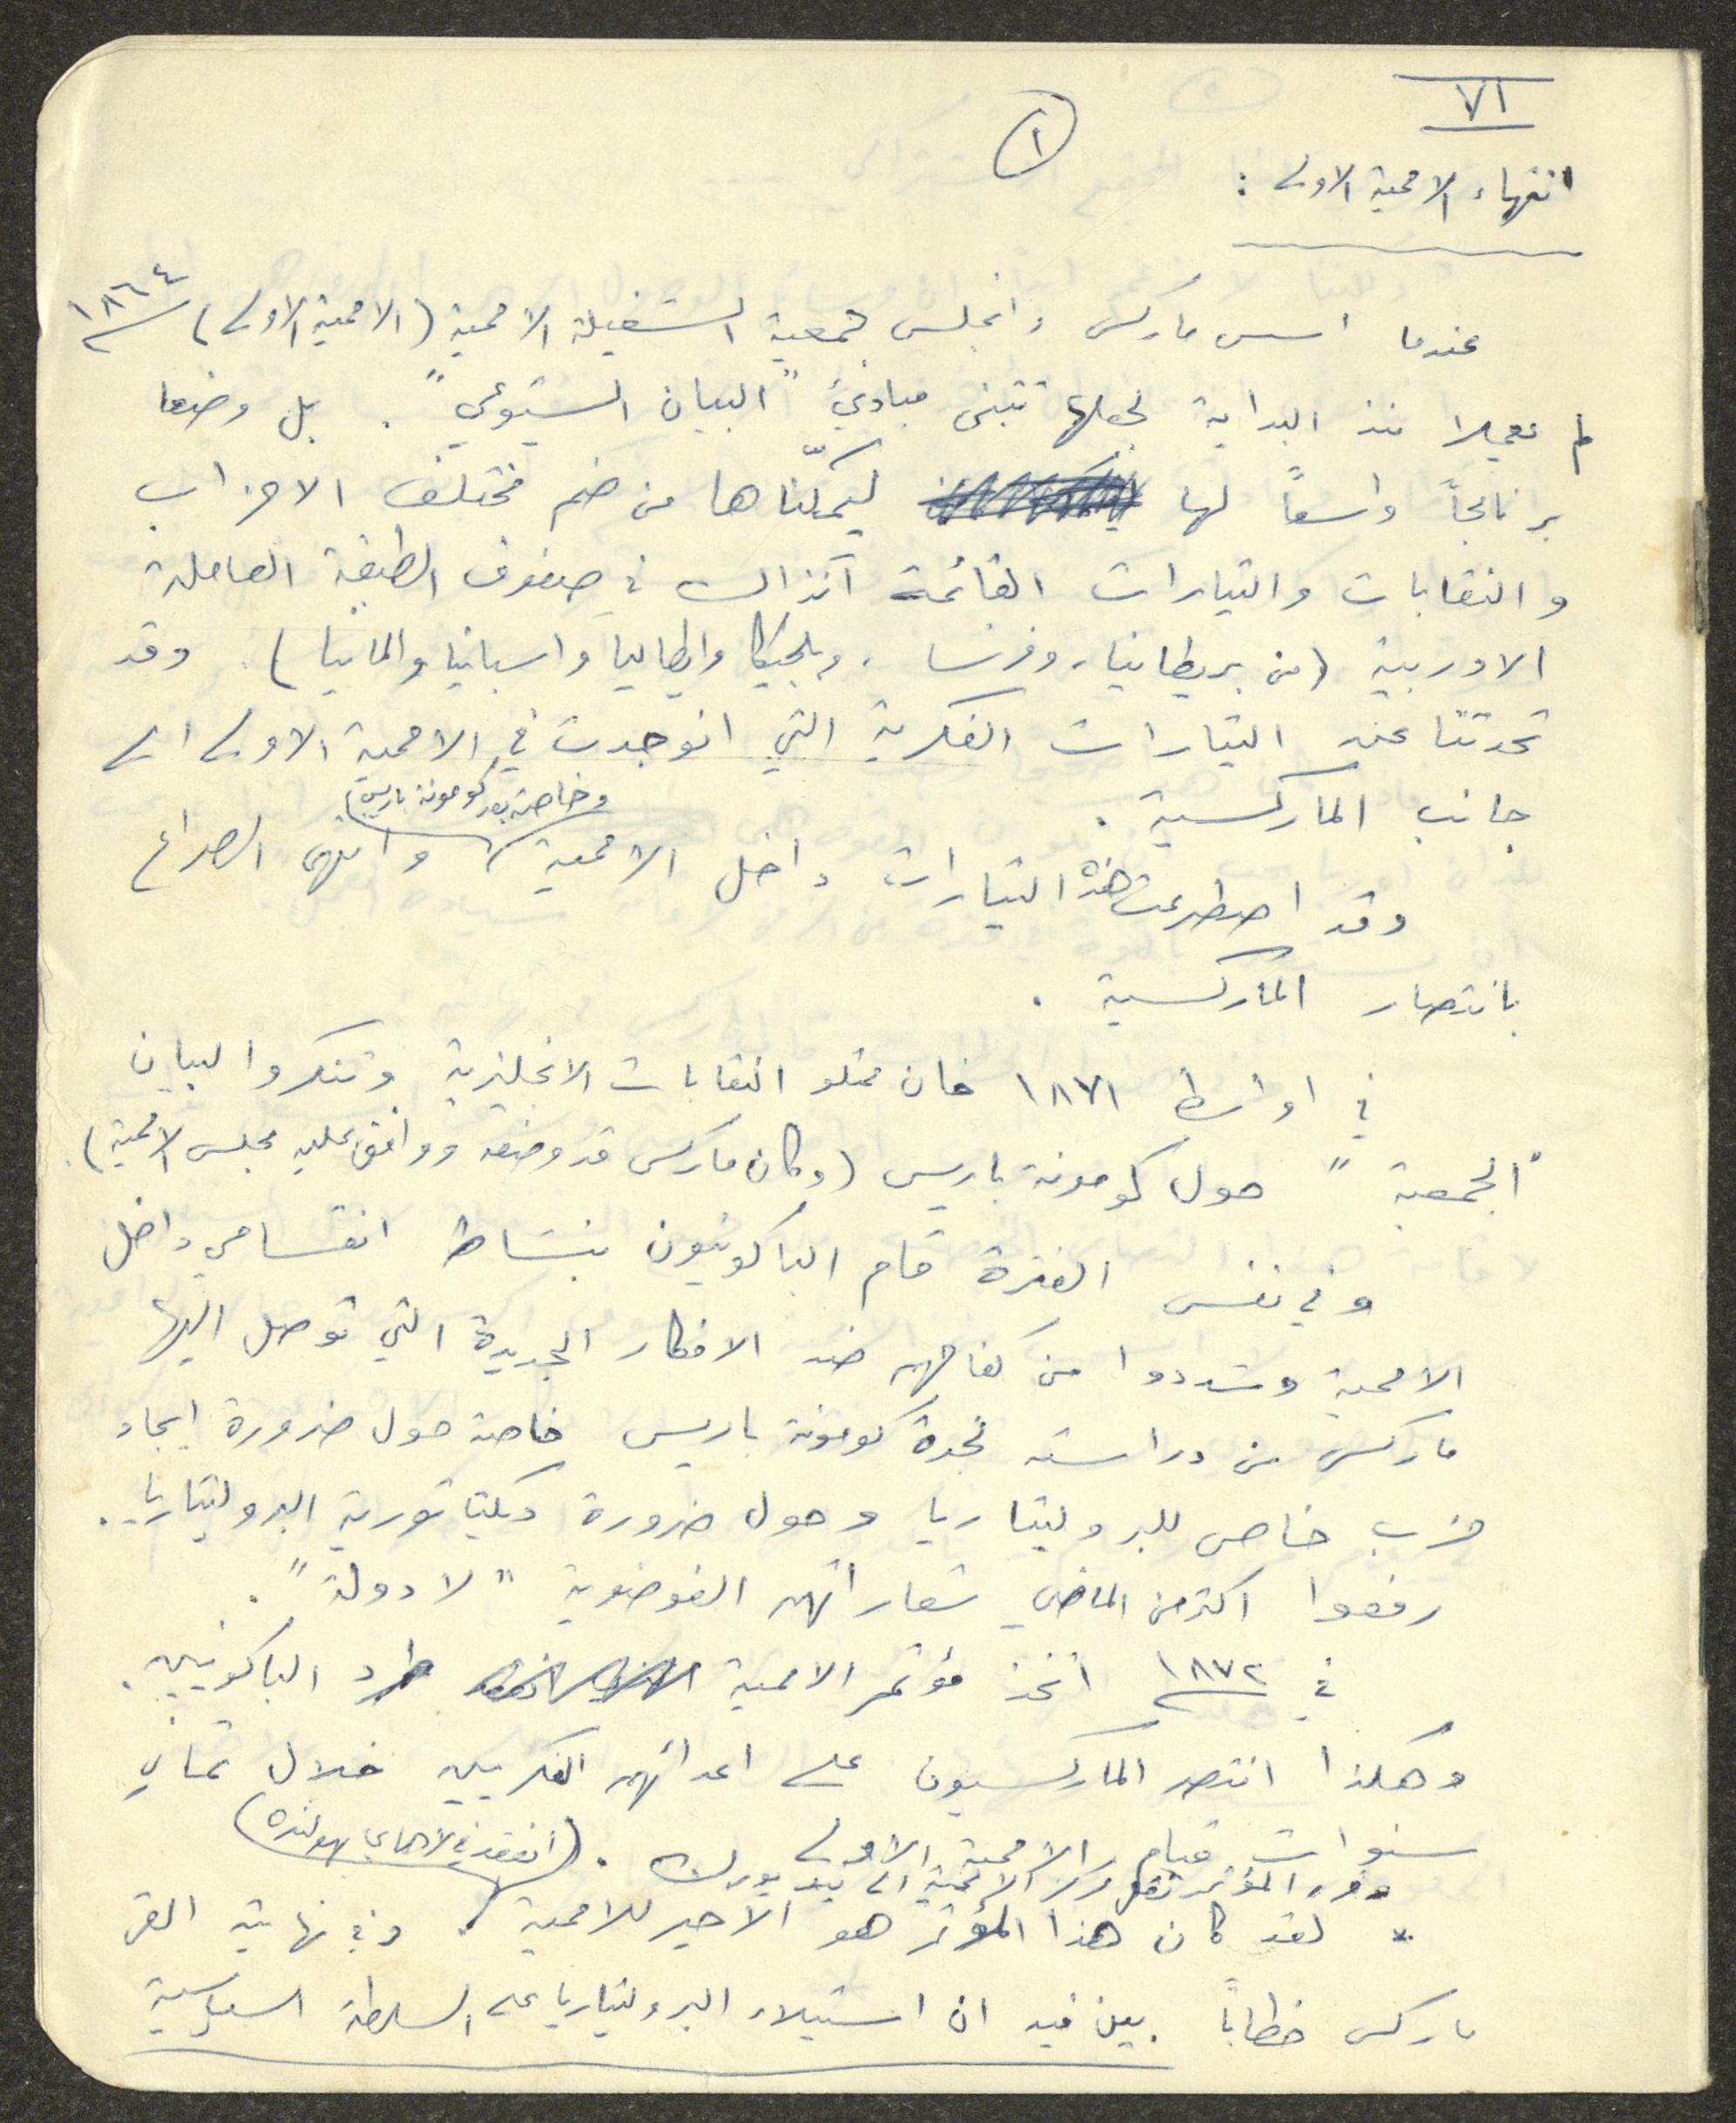 ٧١
١
انتهاء الاممية الاولى :
عندما اسس ماركس وانجلس جمعية الشغيلة الاممية (الاممية الاولى) ١٨٦٤
لم يعملا منذ البداية لجعلها تتبنى مبادئ "البيان الشيوعي" . بل وضعا
برنامجاً واسعاً لها ليمكّناها من ضم مختلف الاحزاب
والنقابات والتيارات القائمة آنذاك في صفوف الطبقة العاملة
الاوربية (من بريطانيا، وفرنسا، وبلجيكا وايطاليا واسبانيا والمانيا). وقد
تحدثنا عن التيارات الفكرية التي انوجدت في الاممية الاولى الى
جانب الماركسية .
وقد اصطرعت هذه التيارات داخل الاممية (وخاصة بعد كومونة باريس) وانتهى الصراع
بانتصار الماركسية .
في اواسط ١٨٧١ خان ممثلو النقابات الانجليزية وتنكروا لبيان
"الجمعية" حول كومونة باريس (وكان ماركس قد وضعه ووافق عليه مجلس الاممية).
وفي نفس الفترة قام الباكونيون بنشاط انقسامي داخل
الاممية وشددوا من كفاحهم ضد الافكار الجديدة التي توصل اليها
ماركس من دراسته تجربة كومونة باريس خاصة حول ضرورة ايجاد
حزب خاص للبروليتاريا وحول ضرورة دكتاتورية البروليتاريا.
رفعوا اكثر من الماضي شعاراتهم الفوضوية "لا دولة".
في ١٨٧٢ اتخذ مؤتمر الاممية طرد الباكونيين.
وهكذا انتصر الماركسيون على اعدائهم الفكريين خلال ثماني
سنوات قيام الاممية الاولى .
وقرر المؤتمر نقل مركز الاممية الى نيويورك .
* لقد كان هذا المؤتمر هو الاخير للاممية (انعقد في لاهاي هولنده). وفي نهايته القى
ماركس خطاباً بين فيه ان استيلاء البروليتاريا على السلطة السياسية